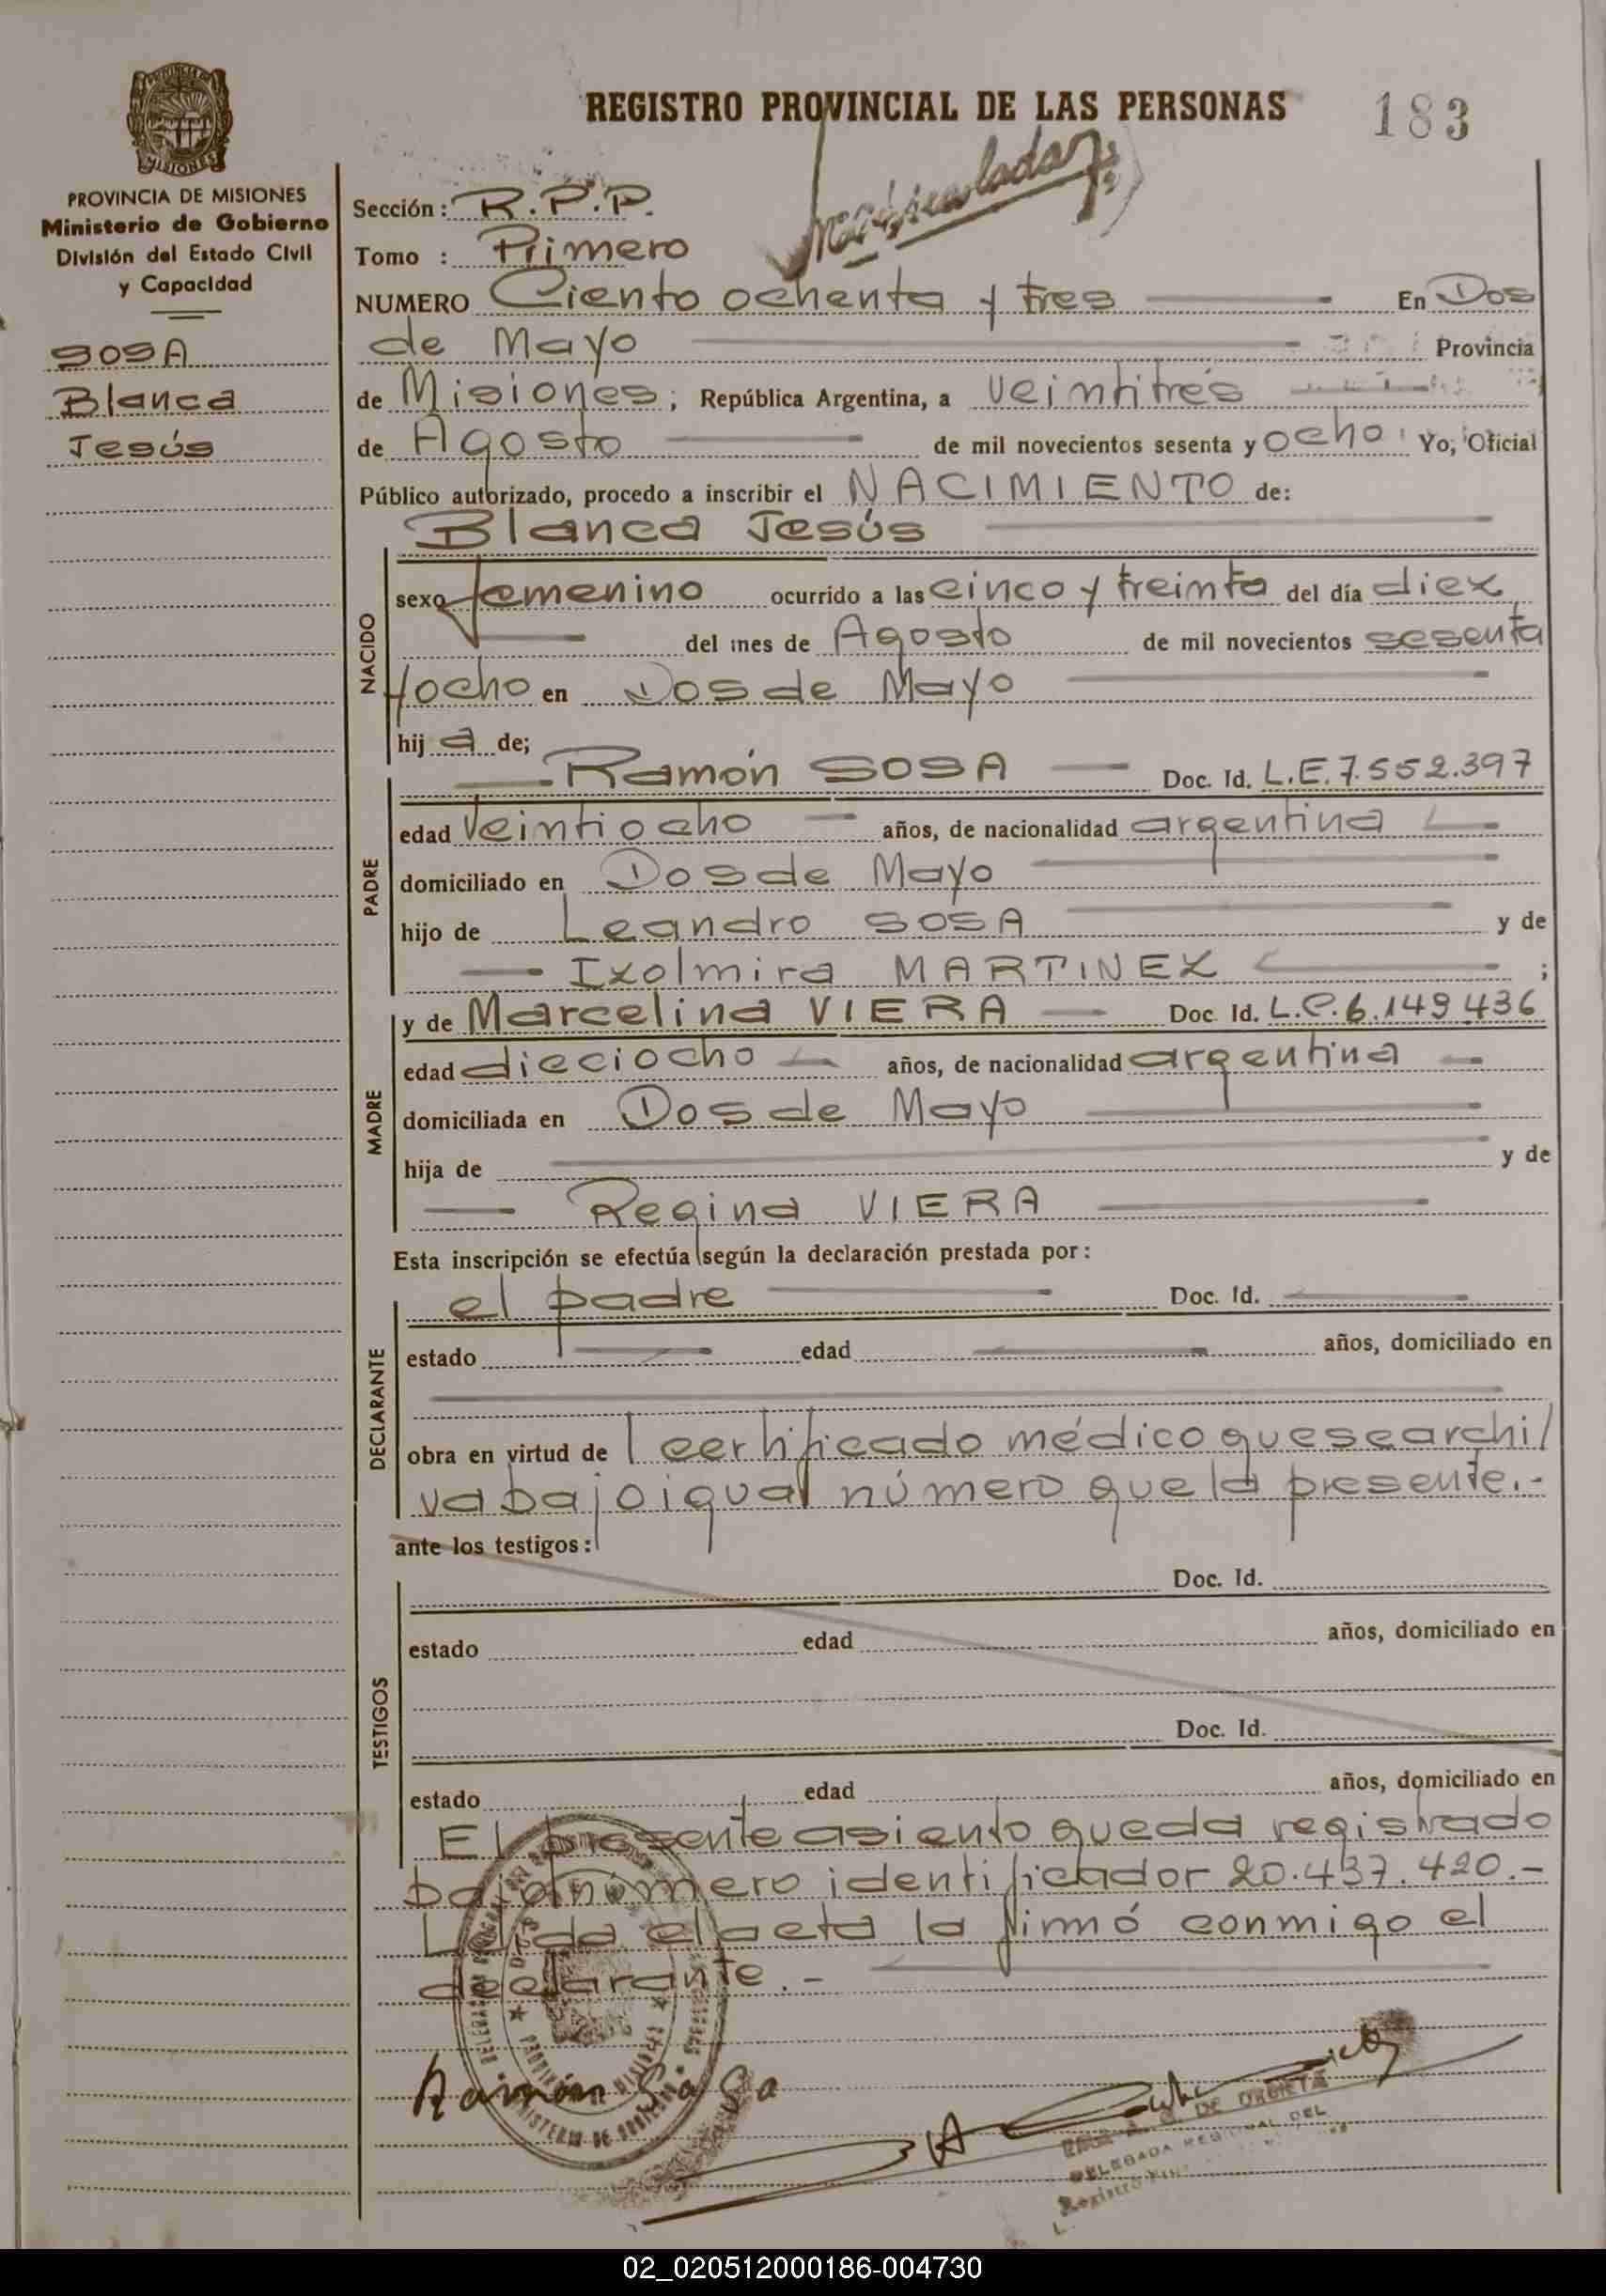 REGISTRO PROVINCIAL DE LAS PERSONAS
183
MISIONES
PROVINCIA DE MISIONES
Ministerio de Gobierno
División del Estado Civil
y Capacidad
SOSA
Blanca
Jesús
Sección: R.P.P.
Tomo: Primero
NUMERO Ciento ochenta y tres En Dos
de Mayo Provincia
de Misiones; República Argentina, a veintitrés
de Agosto de mil novecientos sesenta y ocho. Yo, Oficial
Público autorizado, procedo a inscribir el NACIMIENTO de:
Blanca Jesús
NACIDO
sexo femenino ocurrido a las cinco y treinta del día diez
del mes de Agosto de mil novecientos sesenta
y ocho en Dos de Mayo
hij a de;
Ramón SOSA Doc. Id. L.E.7.552.397
PADRE
edad veintiocho años, de nacionalidad argentina
domiciliado en Dos de Mayo
hijo de Leandro SOSA y de
Izolmira MARTINEZ ;
y de Marcelina VIERA Doc. Id. L.C.6.149.436
MADRE
edad dieciocho años, de nacionalidad argentina
domiciliada en Dos de Mayo
hija de y de
Regina VIERA
Esta inscripción se efectúa según la declaración prestada por:
el padre Doc. Id.
DECLARANTE
estado edad años, domiciliado en
obra en virtud de l certificado médico que se archi/
va bajo igual número que la presente.-
ante los testigos:
Doc. Id.
TESTIGOS
estado edad años, domiciliado en
Doc. Id.
estado edad años, domiciliado en
El presente asiento queda registrado
bajo número identificador 20.437.420.-
Leída el acta la firmó conmigo el
declarante.-
Ramón SoSa
DE URBIETA
DELEGADA REGIONAL DEL
Registro
02_020512000186-004730